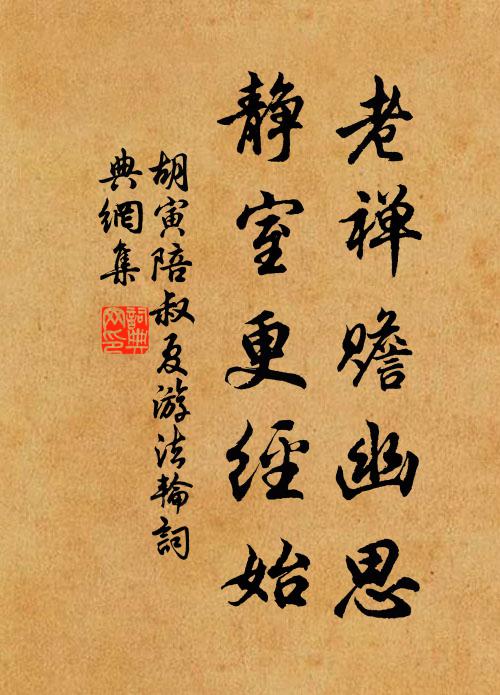 老禅赡幽思
静室更经始
胡寅陪叔夏游法輪詞
典網集
詞典
网印